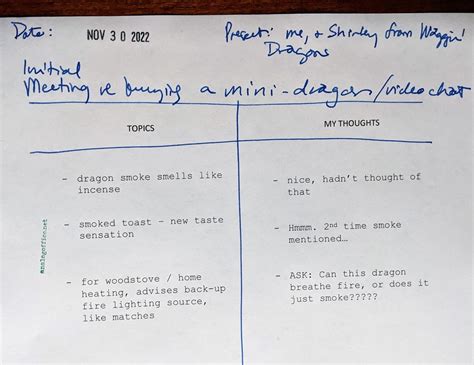 Date: NOV 30 2022 Present: me, + Shirley from Waggin'
Dragons
Initial
Meeting re buying a mini-dragon/videochat
TOPICS
MY THOUGHTS
- dragon smoke smells like
incense
- nice, hadn't thought of
that
- smoked toast - new taste
sensation
- Hmmm. 2nd time smoke
mentioned…
- for woodstove / home
heating, advises back-up
fire lighting source,
like matches
- ASK: Can this dragon
breathe fire, or does it
just smoke?????